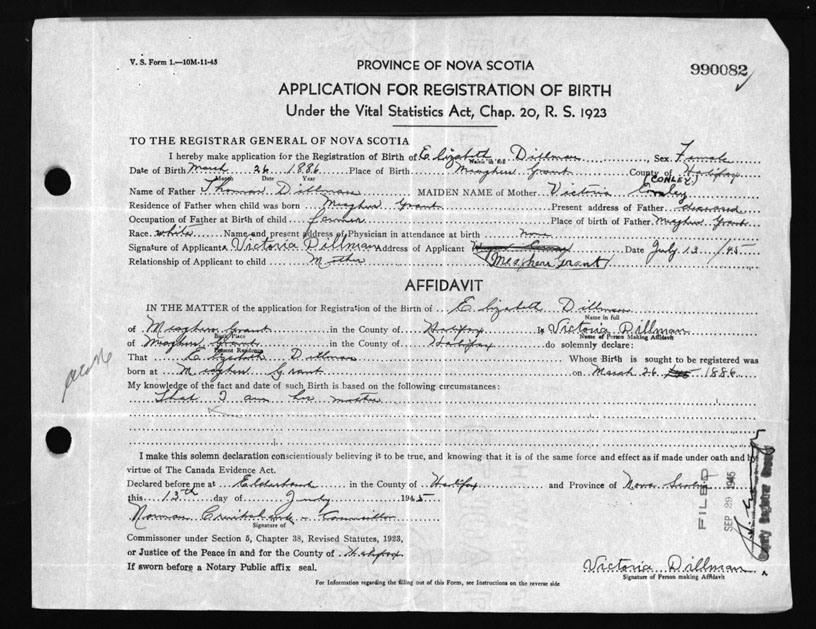 V. S. Form 1.—10M-11-43
PROVINCE OF NOVA SCOTIA
990082
APPLICATION FOR REGISTRATION OF BIRTH
Under the Vital Statistics Act, Chap. 20, R. S. 1923
TO THE REGISTRAR GENERAL OF NOVA SCOTIA
I hereby make application for the Registration of Birth of Elizabeth Dillman Sex Female
Name in full
Date of Birth March 26 1886 Place of Birth Meaghers Grant County of Halifax
Month Date Year
(CONLEY)
Name of Father Thomas Dillman MAIDEN NAME of Mother Victoria Conley
Residence of Father when child was born Meaghers Grant Present address of Father deceased
Occupation of Father at Birth of child farmer Place of birth of Father Meaghers Grant
Race white Name and present address of Physician in attendance at birth none
Signature of Applicant Victoria Dillman Address of Applicant Date July 13 /45
Relationship of Applicant to child Mother Meaghers Grant
AFFIDAVIT
IN THE MATTER of the application for Registration of the Birth of Elizabeth Dillman
Name in full
of Meaghers Grant in the County of Halifax I, Victoria Dillman
Birth Place Name of Person Making Affidavit
of Meaghers Grant in the County of Halifax do solemnly declare:
Present Residence
That Elizabeth Dillman Whose Birth is sought to be registered was
born at Meaghers Grant on March 26 1886
My knowledge of the fact and date of such Birth is based on the following circumstances:
That I am her mother
I make this solemn declaration conscientiously believing it to be true, and knowing that it is of the same force and effect as if made under oath and by
virtue of The Canada Evidence Act.
Declared before me at Elderbank in the County of Halifax and Province of Nova Scotia
this 13th day of July 1945
Norman Cruikshank - Councillor
Signature of
Commissoner under Section 5, Chapter 38, Revised Statutes, 1923,
or Justice of the Peace in and for the County of Halifax
If sworn before a Notary Public affix seal.
Victoria Dillman
Signature of Person making Affidavit
For Information regarding the filling out of this Form, see Instructions on the reverse side
FILED
SEP 29 1945